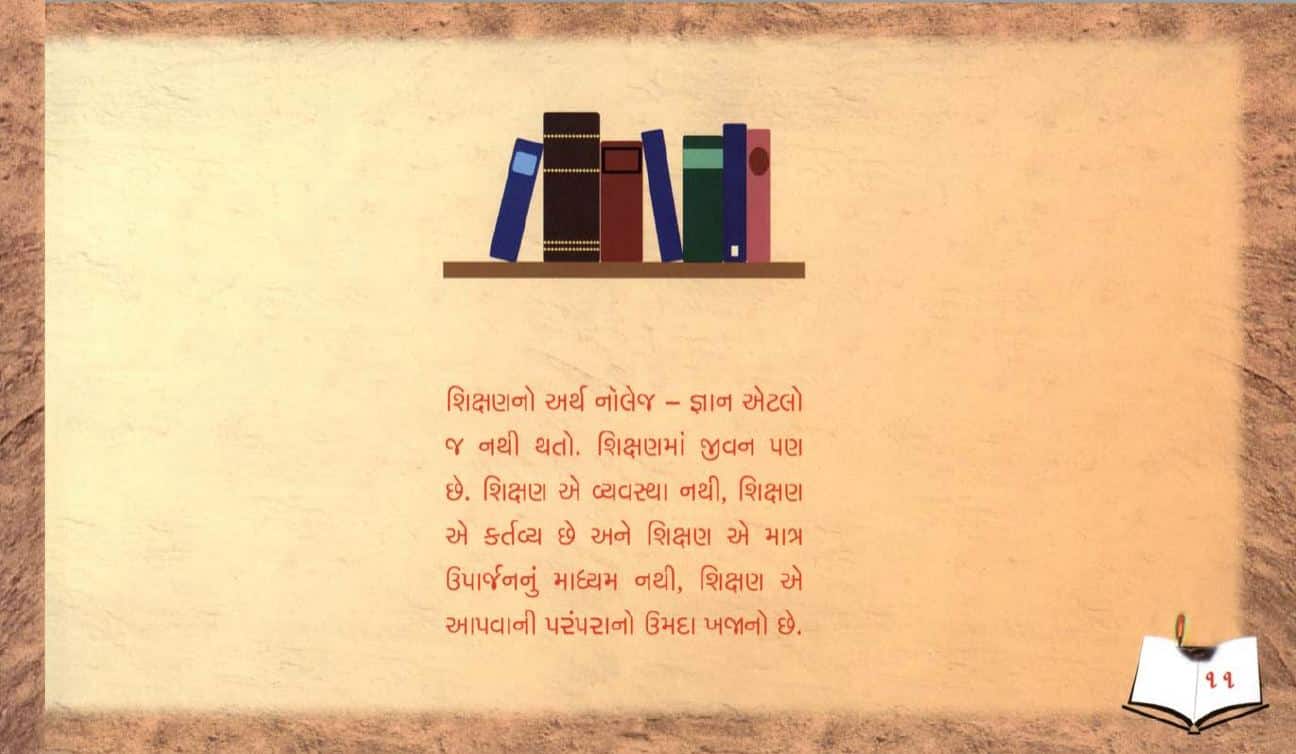 શિક્ષણનો અર્થ નૉલેજ – જ્ઞાન એટલો
જ નથી થતો. શિક્ષણમાં જીવન પણ
છે. શિક્ષણ એ વ્યવસ્થા નથી, શિક્ષણ
એ કર્તવ્ય છે અને શિક્ષણ એ માત્ર
ઉપાર્જનનું માધ્યમ નથી, શિક્ષણ એ
આપવાની પરંપરાનો ઉમદા ખજાનો છે.
૧૧